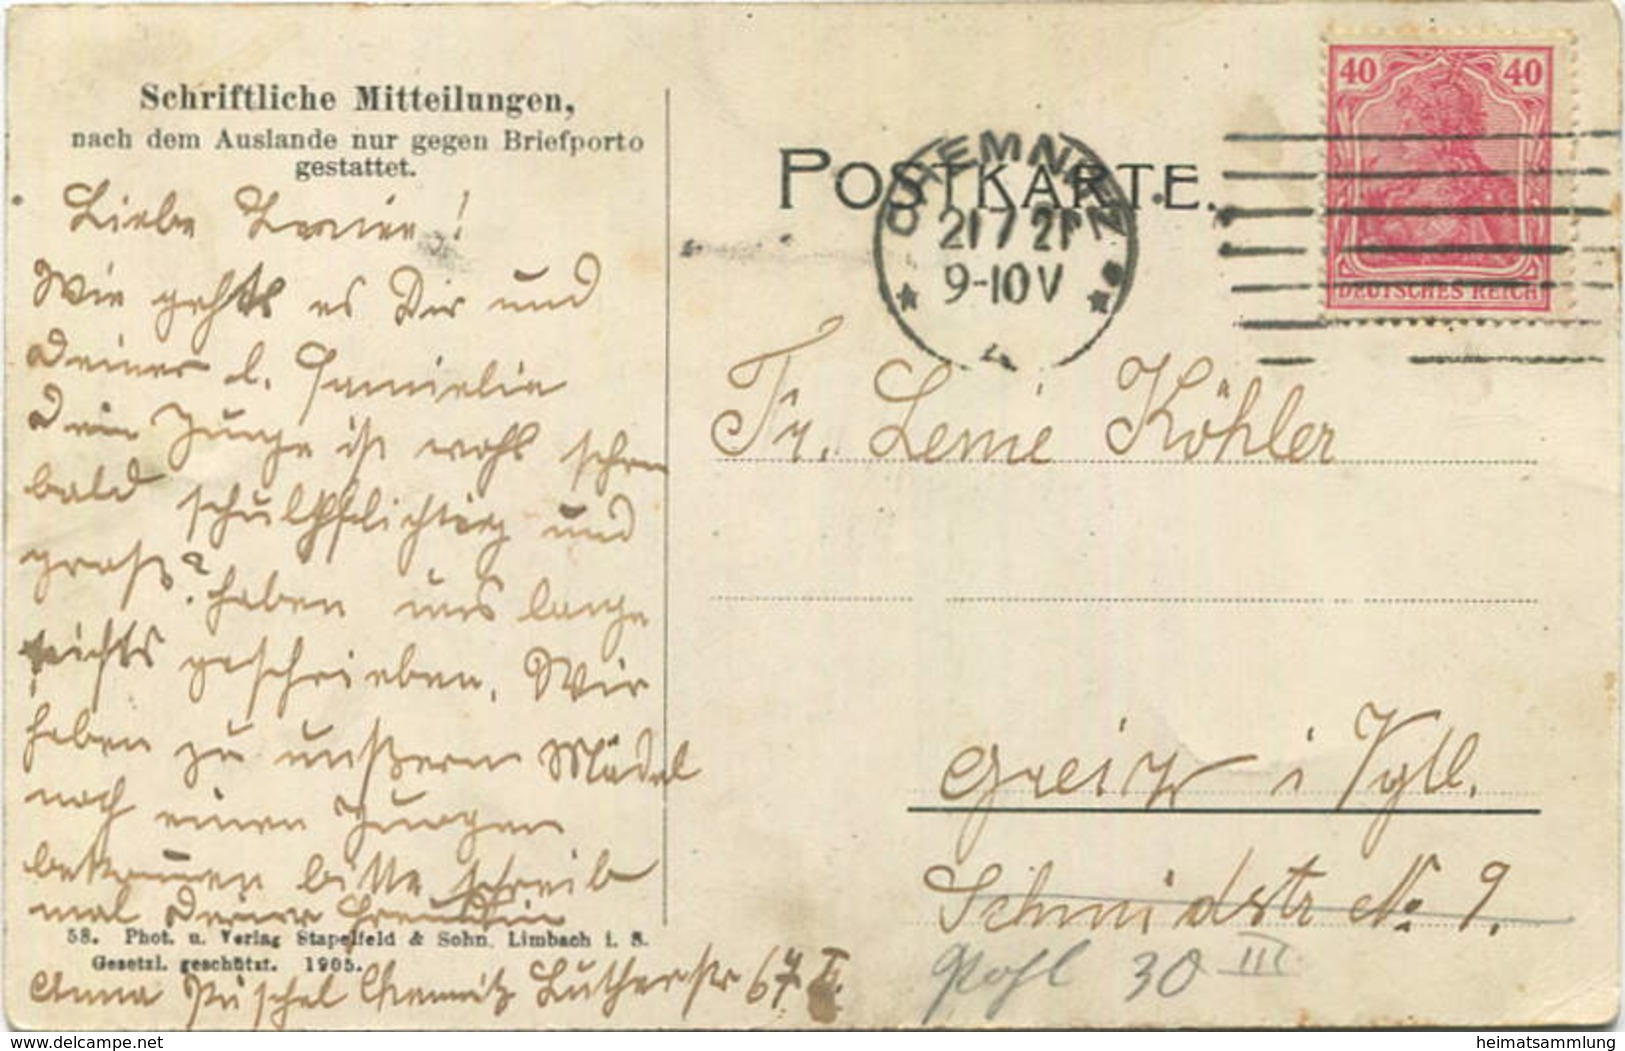 Schriftliche Mitteilungen,
nach dem Auslande nur gegen Briefporto
gestattet.
Liebe Lenie!
Wie gehts es Dir und
Deiner l. Familie
Dein Junge ist wohl schon
bald schulpflichtig und
groß? haben uns lange
nichts geschrieben. Wir
haben zu unßern Mädel
noch einen Jungen
bekommen bitte schreib
mal Deiner Freundin
58. Phot. u. Verlag Stapelfeld & Sohn, Limbach i. S.
Gesetzl. geschützt. 1905.
Anna Püschel Chemnitz Lutherstr 67 I.
POSTKARTE.
CHEMNITZ
21 7 21
9-10 V
40 40
DEUTSCHES REICH
Fr. Lenie Köhler
Greiz i Vgtl.
Schmidstr No 9.
Pohl 30 III
© heimatsammlung
www.delcampe.net